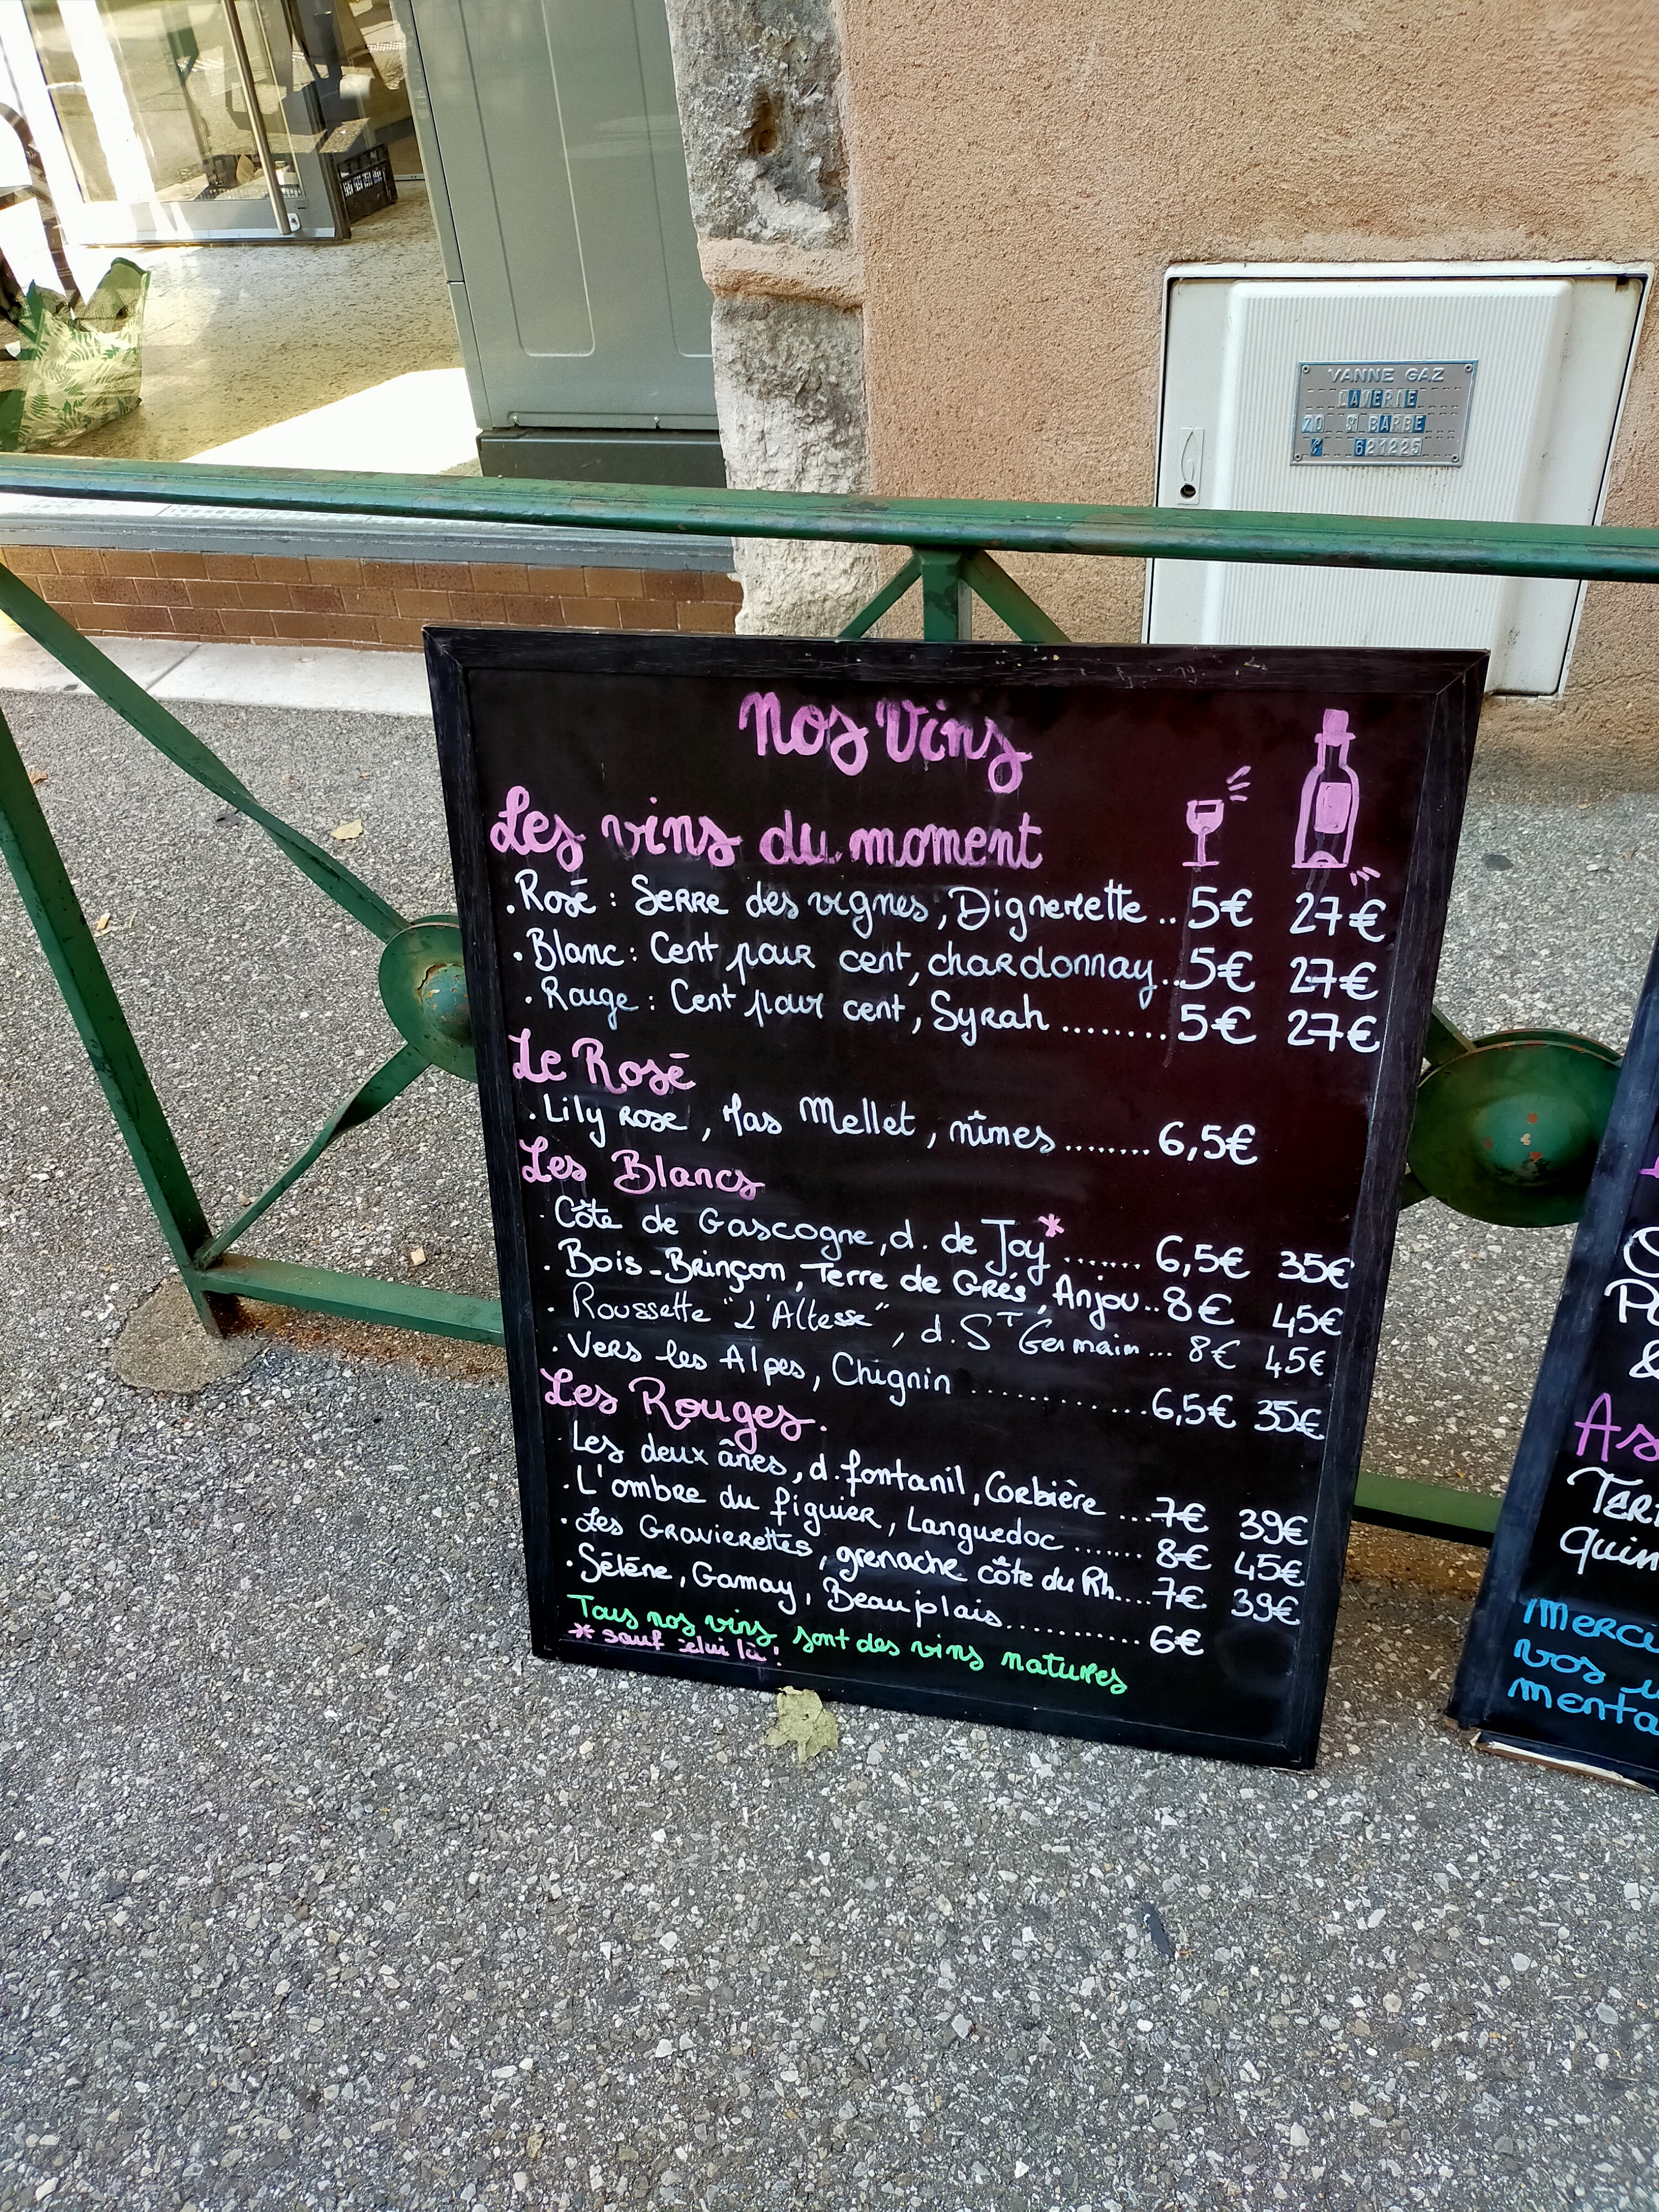 VANNE GAZ
LAVERIE
70 St BARBE
621225
Nos Vins
Les vins du moment
. Rosé : Serre des vignes, Dignerette .. 5€ 27€
. Blanc : Cent pour cent, chardonnay .. 5€ 27€
. Rouge : Cent pour cent, Syrah ........ 5€ 27€
Le Rosé
. Lily rose, Mas Mellet, nîmes ........ 6,5€
Les Blancs
. Côte de Gascogne, d. de Joy* ....... 6,5€ 35€
. Bois-Brinçon, Terre de Grés, Anjou .. 8€ 45€
. Roussette "L'Altesse", d. St Germain ... 8€ 45€
. Vers les Alpes, Chignin ............. 6,5€ 35€
Les Rouges.
. Les deux ânes, d. fontanil, Corbière ... 7€ 39€
. L'ombre du figuier, Languedoc ....... 8€ 45€
. Les Gravierettes, grenache côte du Rh.... 7€ 39€
. Séléne, Gamay, Beaujolais ............ 6€
Tous nos vins sont des vins natures
* sauf celui là !
As
Ter
quin
Merci
vos
menta